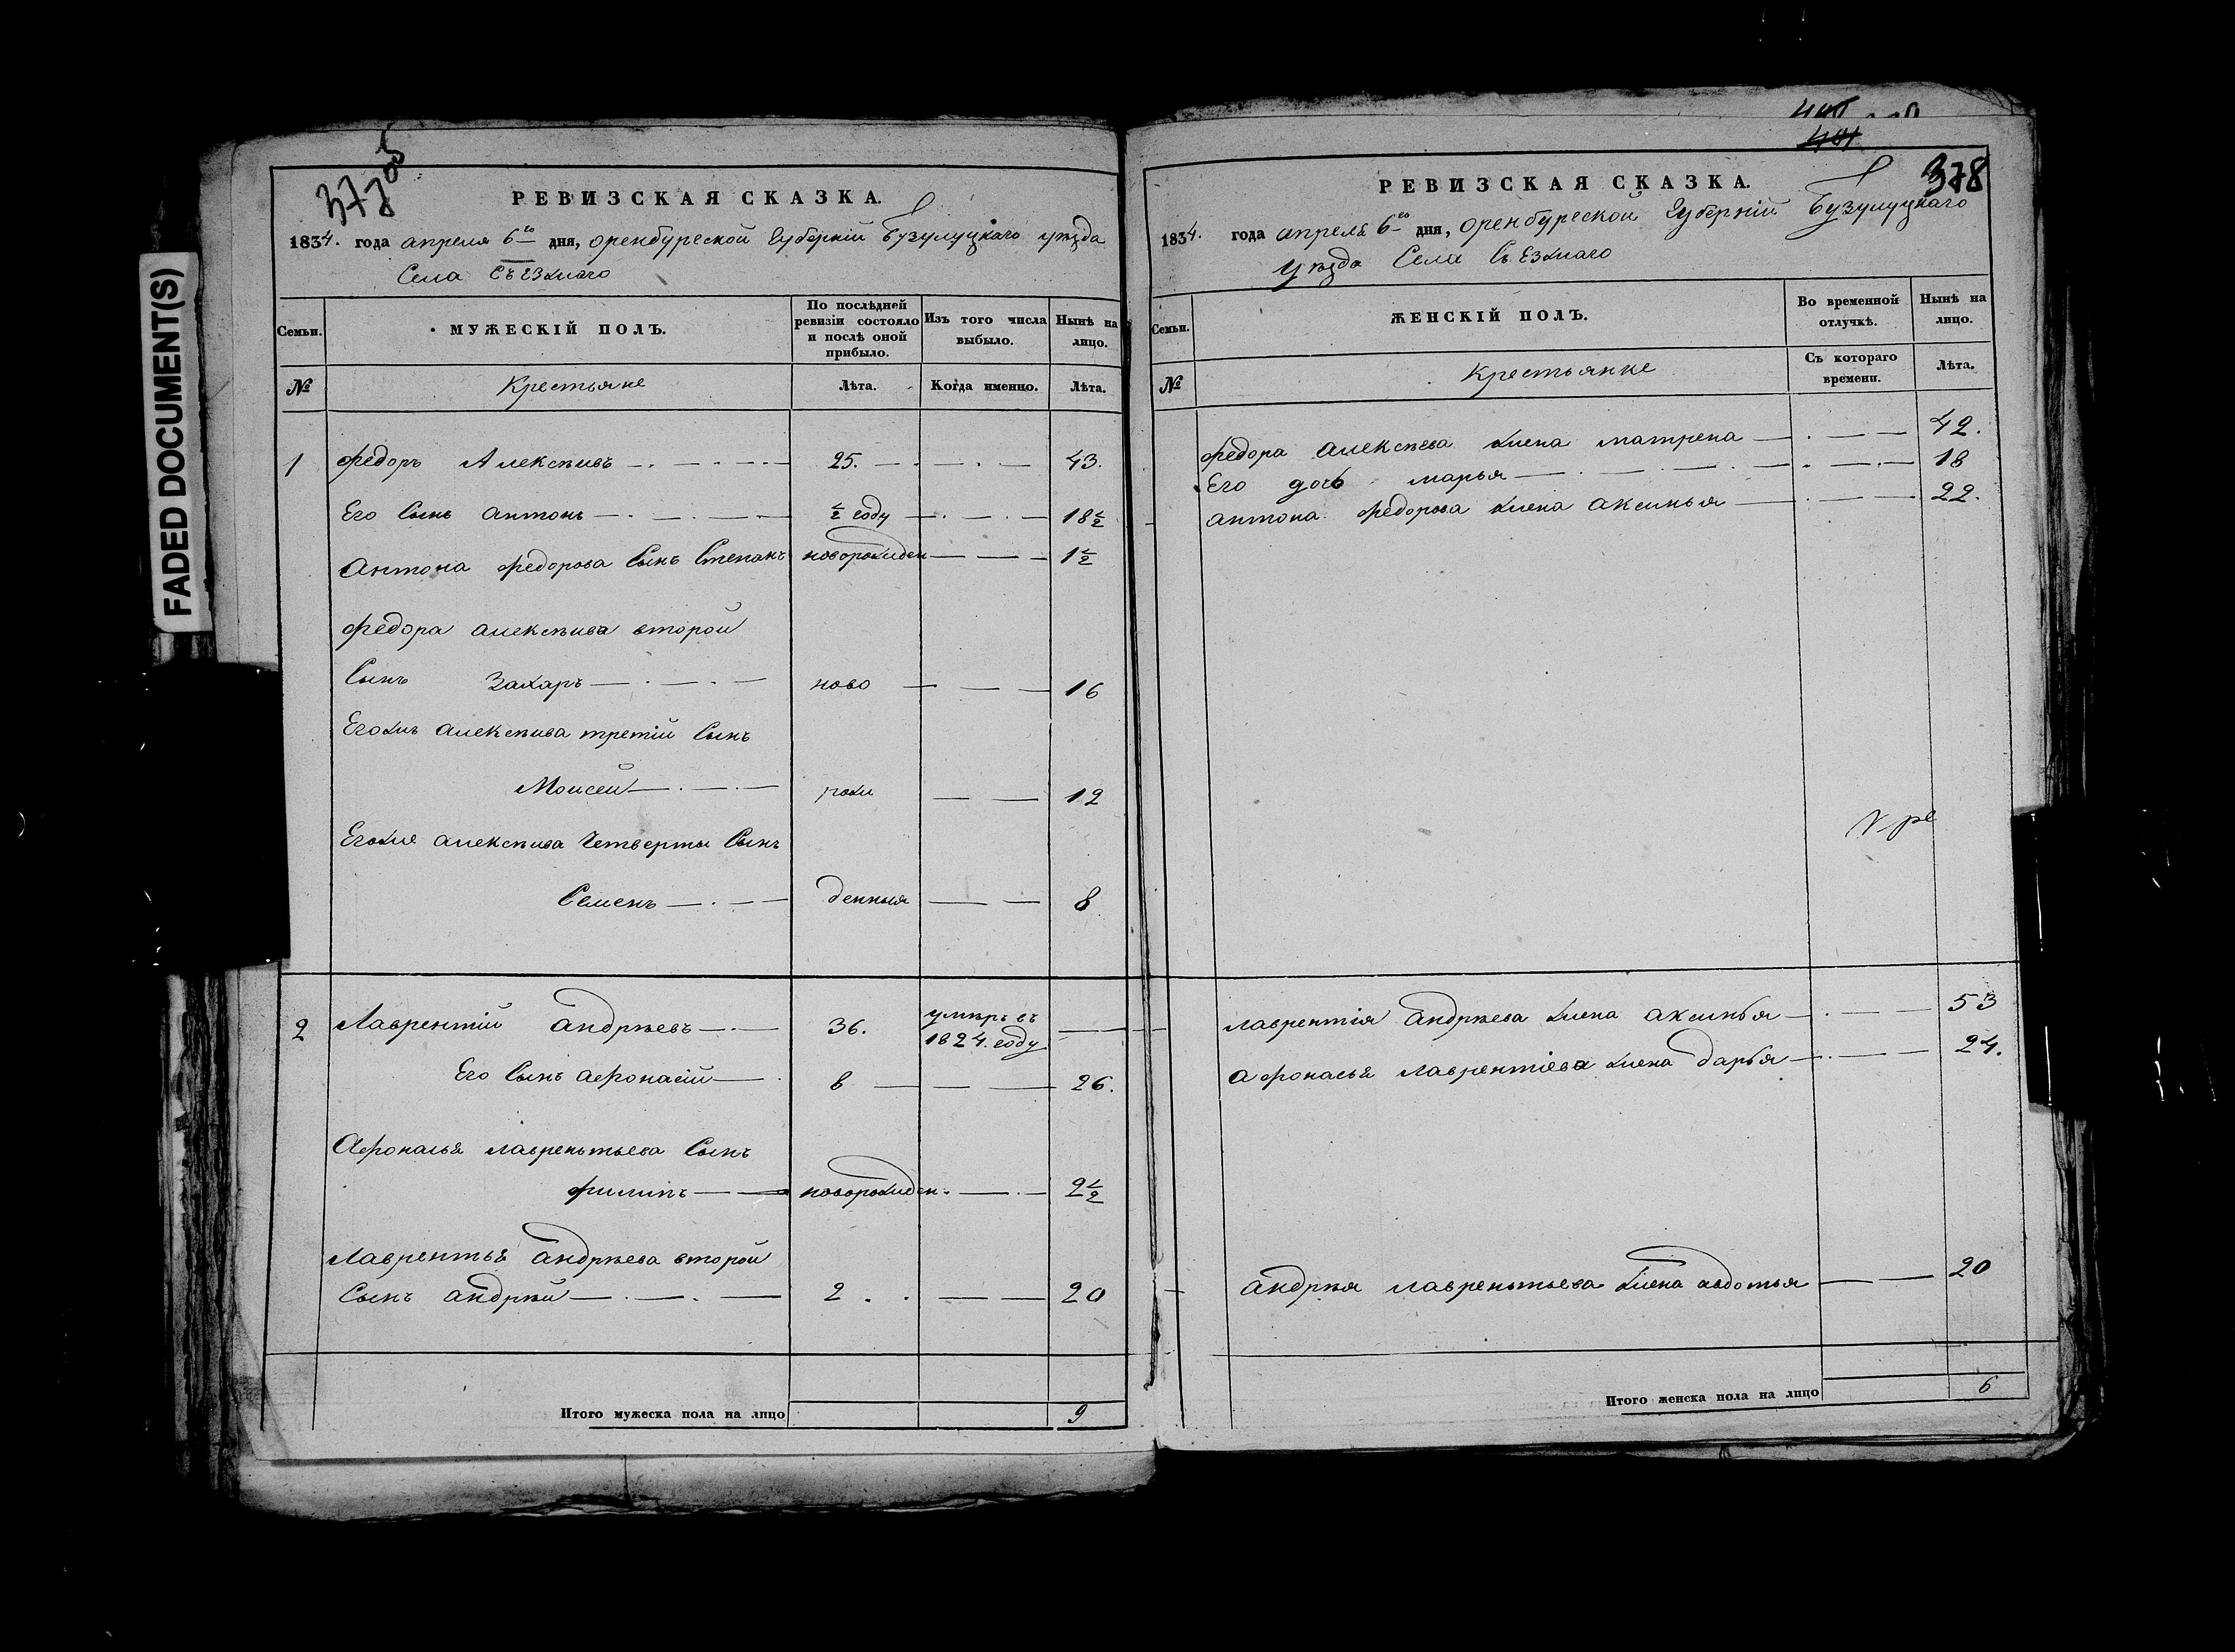 FADED DOCUMENT(S)
377 об
РЕВИЗСКАЯ СКАЗКА.
1834. года апреля 6го дня, оренбургской Губерніи Бузулуцкаго уѣзда
Села Съезжаго
Семьи.
МУЖЕСКІЙ ПОЛЪ.
По послѣдней ревизіи состояло и послѣ оной прибыло.
Изъ того числа выбыло.
Нынѣ на лицо.
№
Крестьяне
Лѣта.
Когда именно.
Лѣта.
1 Федоръ Алексѣивъ 25. 43.
Его Сынъ антонъ ½ году 18½
Антона федорова Сынъ Степанъ новорожден 1½
Федора алексѣива второй
Сынъ Захаръ ново 16
Егожъ алексѣива третій Сынъ
Моисей рож 12
Егожа алексѣива Четверты Сынъ
Семенъ денныя 8
2 Лаврентій андрѣевъ 36. умѣръ въ 1824. году
Его Сынъ афонасій 8 26.
Афонасья лаврентьева Сынъ
филипъ новорожден. 2½
Лаврентья андрѣева второй
Сынъ андрѣй 2. 20
Итого мужеска пола на лицо 9
401
378
РЕВИЗСКАЯ СКАЗКА.
1834. года апреля 6го дня, оренбургской Губерній Бузулуцкаго
уѣзда Села Съезжаго
Семьи.
ЖЕНСКІЙ ПОЛЪ.
Во временной отлучкѣ.
Нынѣ на лицо.
№
Крестьянке
Съ котораго времени.
Лѣта.
Федора алексѣева жена матрена 42.
Его дочь марья 18
антона федорова жена аксинья 22.
лаврентія андрѣева жена аксинья 53
афонасья лаврентіева жена дарья 24.
андрѣя лаврентьева жена авдотья 20
Итого женска пола на лицо 6